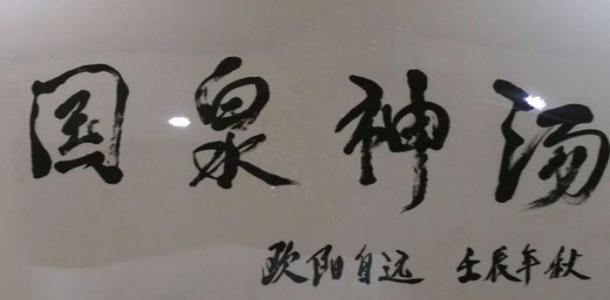 国泉神汤
欧阳自远 壬辰年秋